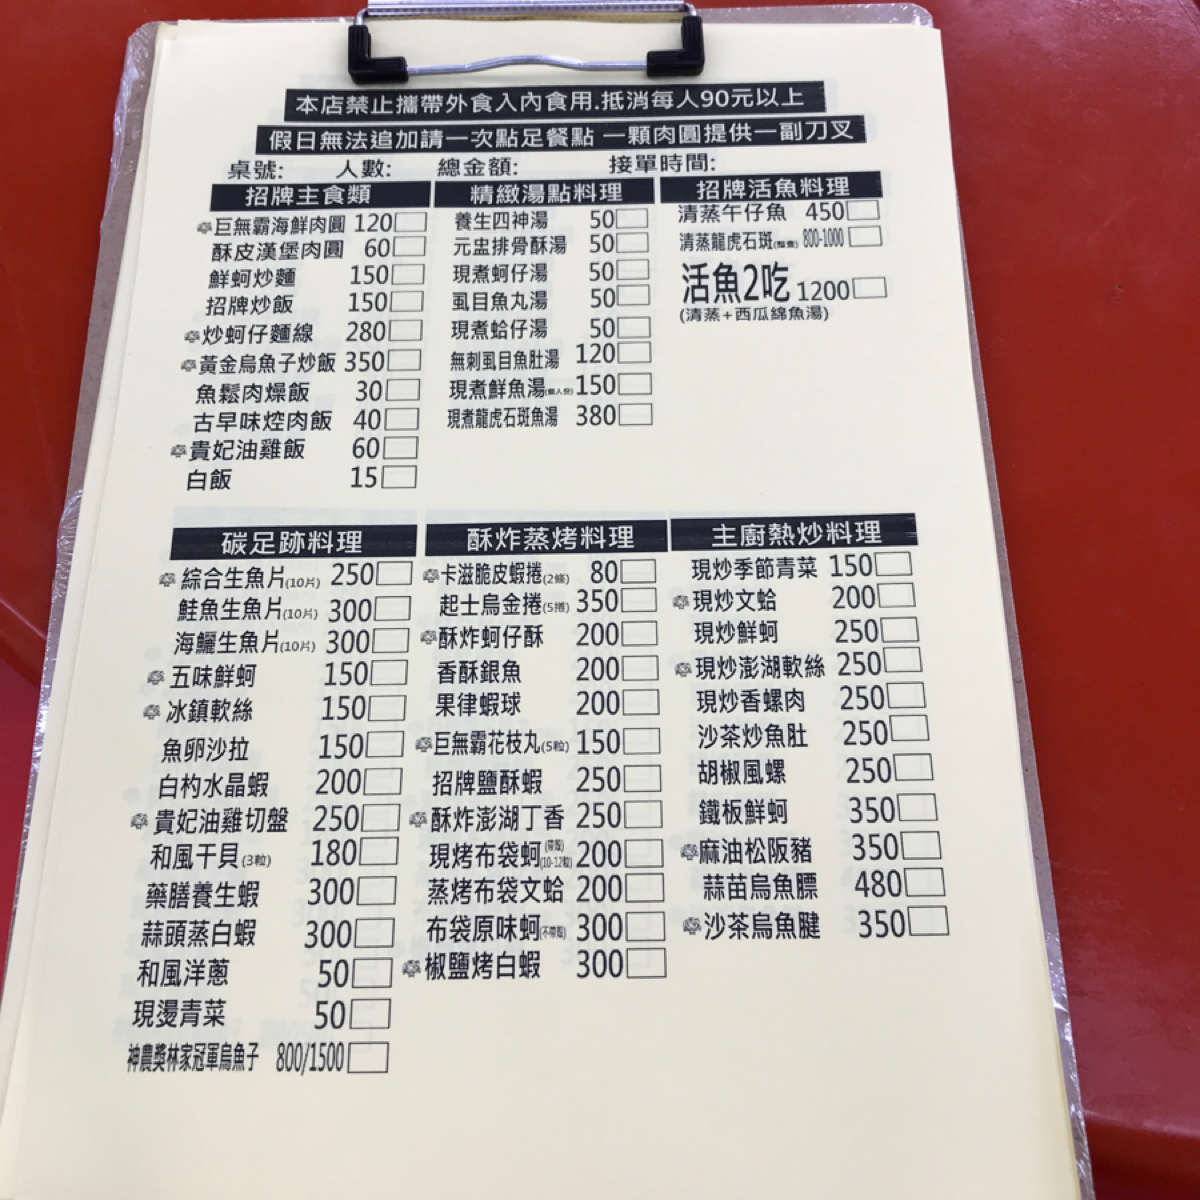 本店禁止攜帶外食入內食用.抵消每人90元以上
假日無法追加請一次點足餐點 一顆肉圓提供一副刀叉
桌號: 人數: 總金額: 接單時間:
招牌主食類
巨無霸海鮮肉圓 120
酥皮漢堡肉圓 60
鮮蚵炒麵 150
招牌炒飯 150
炒蚵仔麵線 280
黃金烏魚子炒飯 350
魚鬆肉燥飯 30
古早味焢肉飯 40
貴妃油雞飯 60
白飯 15
精緻湯點料理
養生四神湯 50
元盅排骨酥湯 50
現煮蚵仔湯 50
虱目魚丸湯 50
現煮蛤仔湯 50
無刺虱目魚肚湯 120
現煮鮮魚湯 150
現煮龍虎石斑魚湯 380
招牌活魚料理
清蒸午仔魚 450
清蒸龍虎石斑 800-1000
活魚2吃 1200
(清蒸+西瓜綿魚湯)
碳足跡料理
綜合生魚片(10片) 250
鮭魚生魚片(10片) 300
海鱺生魚片(10片) 300
五味鮮蚵 150
冰鎮軟絲 150
魚卵沙拉 150
白灼水晶蝦 200
貴妃油雞切盤 250
和風干貝(3粒) 180
藥膳養生蝦 300
蒜頭蒸白蝦 300
和風洋蔥 50
現燙青菜 50
神農獎林家冠軍烏魚子 800/1500
酥炸蒸烤料理
卡滋脆皮蝦捲(2條) 80
起士烏金捲(5捲) 350
酥炸蚵仔酥 200
香酥銀魚 200
果律蝦球 200
巨無霸花枝丸(5粒) 150
招牌鹽酥蝦 250
酥炸澎湖丁香 250
現烤布袋蚵(帶殼)(10-12粒) 200
蒸烤布袋文蛤 200
布袋原味蚵(不帶殼) 300
椒鹽烤白蝦 300
主廚熱炒料理
現炒季節青菜 150
現炒文蛤 200
現炒鮮蚵 250
現炒澎湖軟絲 250
現炒香螺肉 250
沙茶炒魚肚 250
胡椒風螺 250
鐵板鮮蚵 350
麻油松阪豬 350
蒜苗烏魚膘 480
沙茶烏魚腱 350